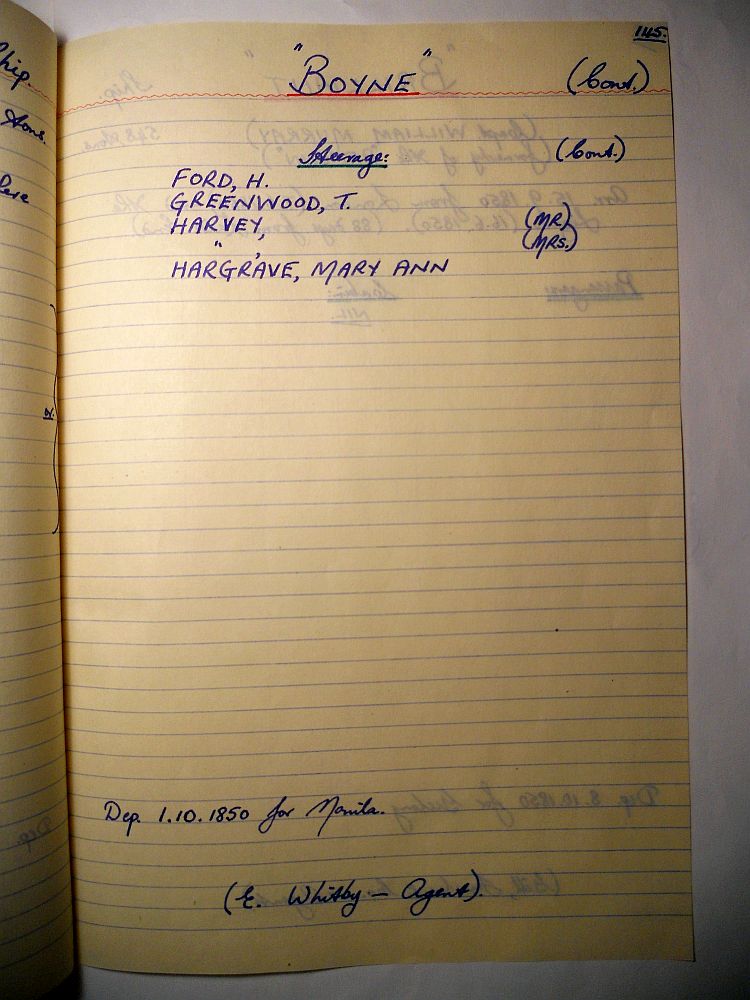 145.
"BOYNE" (Cont.)
Steerage: (Cont.)
FORD, H.
GREENWOOD, T.
HARVEY, (MR)
" , (MRS.)
HARGRAVE, MARY ANN
Dep. 1.10.1850 for Manila.
(E. Whitby — Agent).